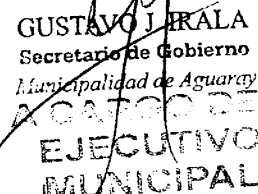 GUSTAVO J. IRALA
Secretario de Gobierno
Municipalidad de Aguaray
A CARGO DE
EJECUTIVO
MUNICIPAL